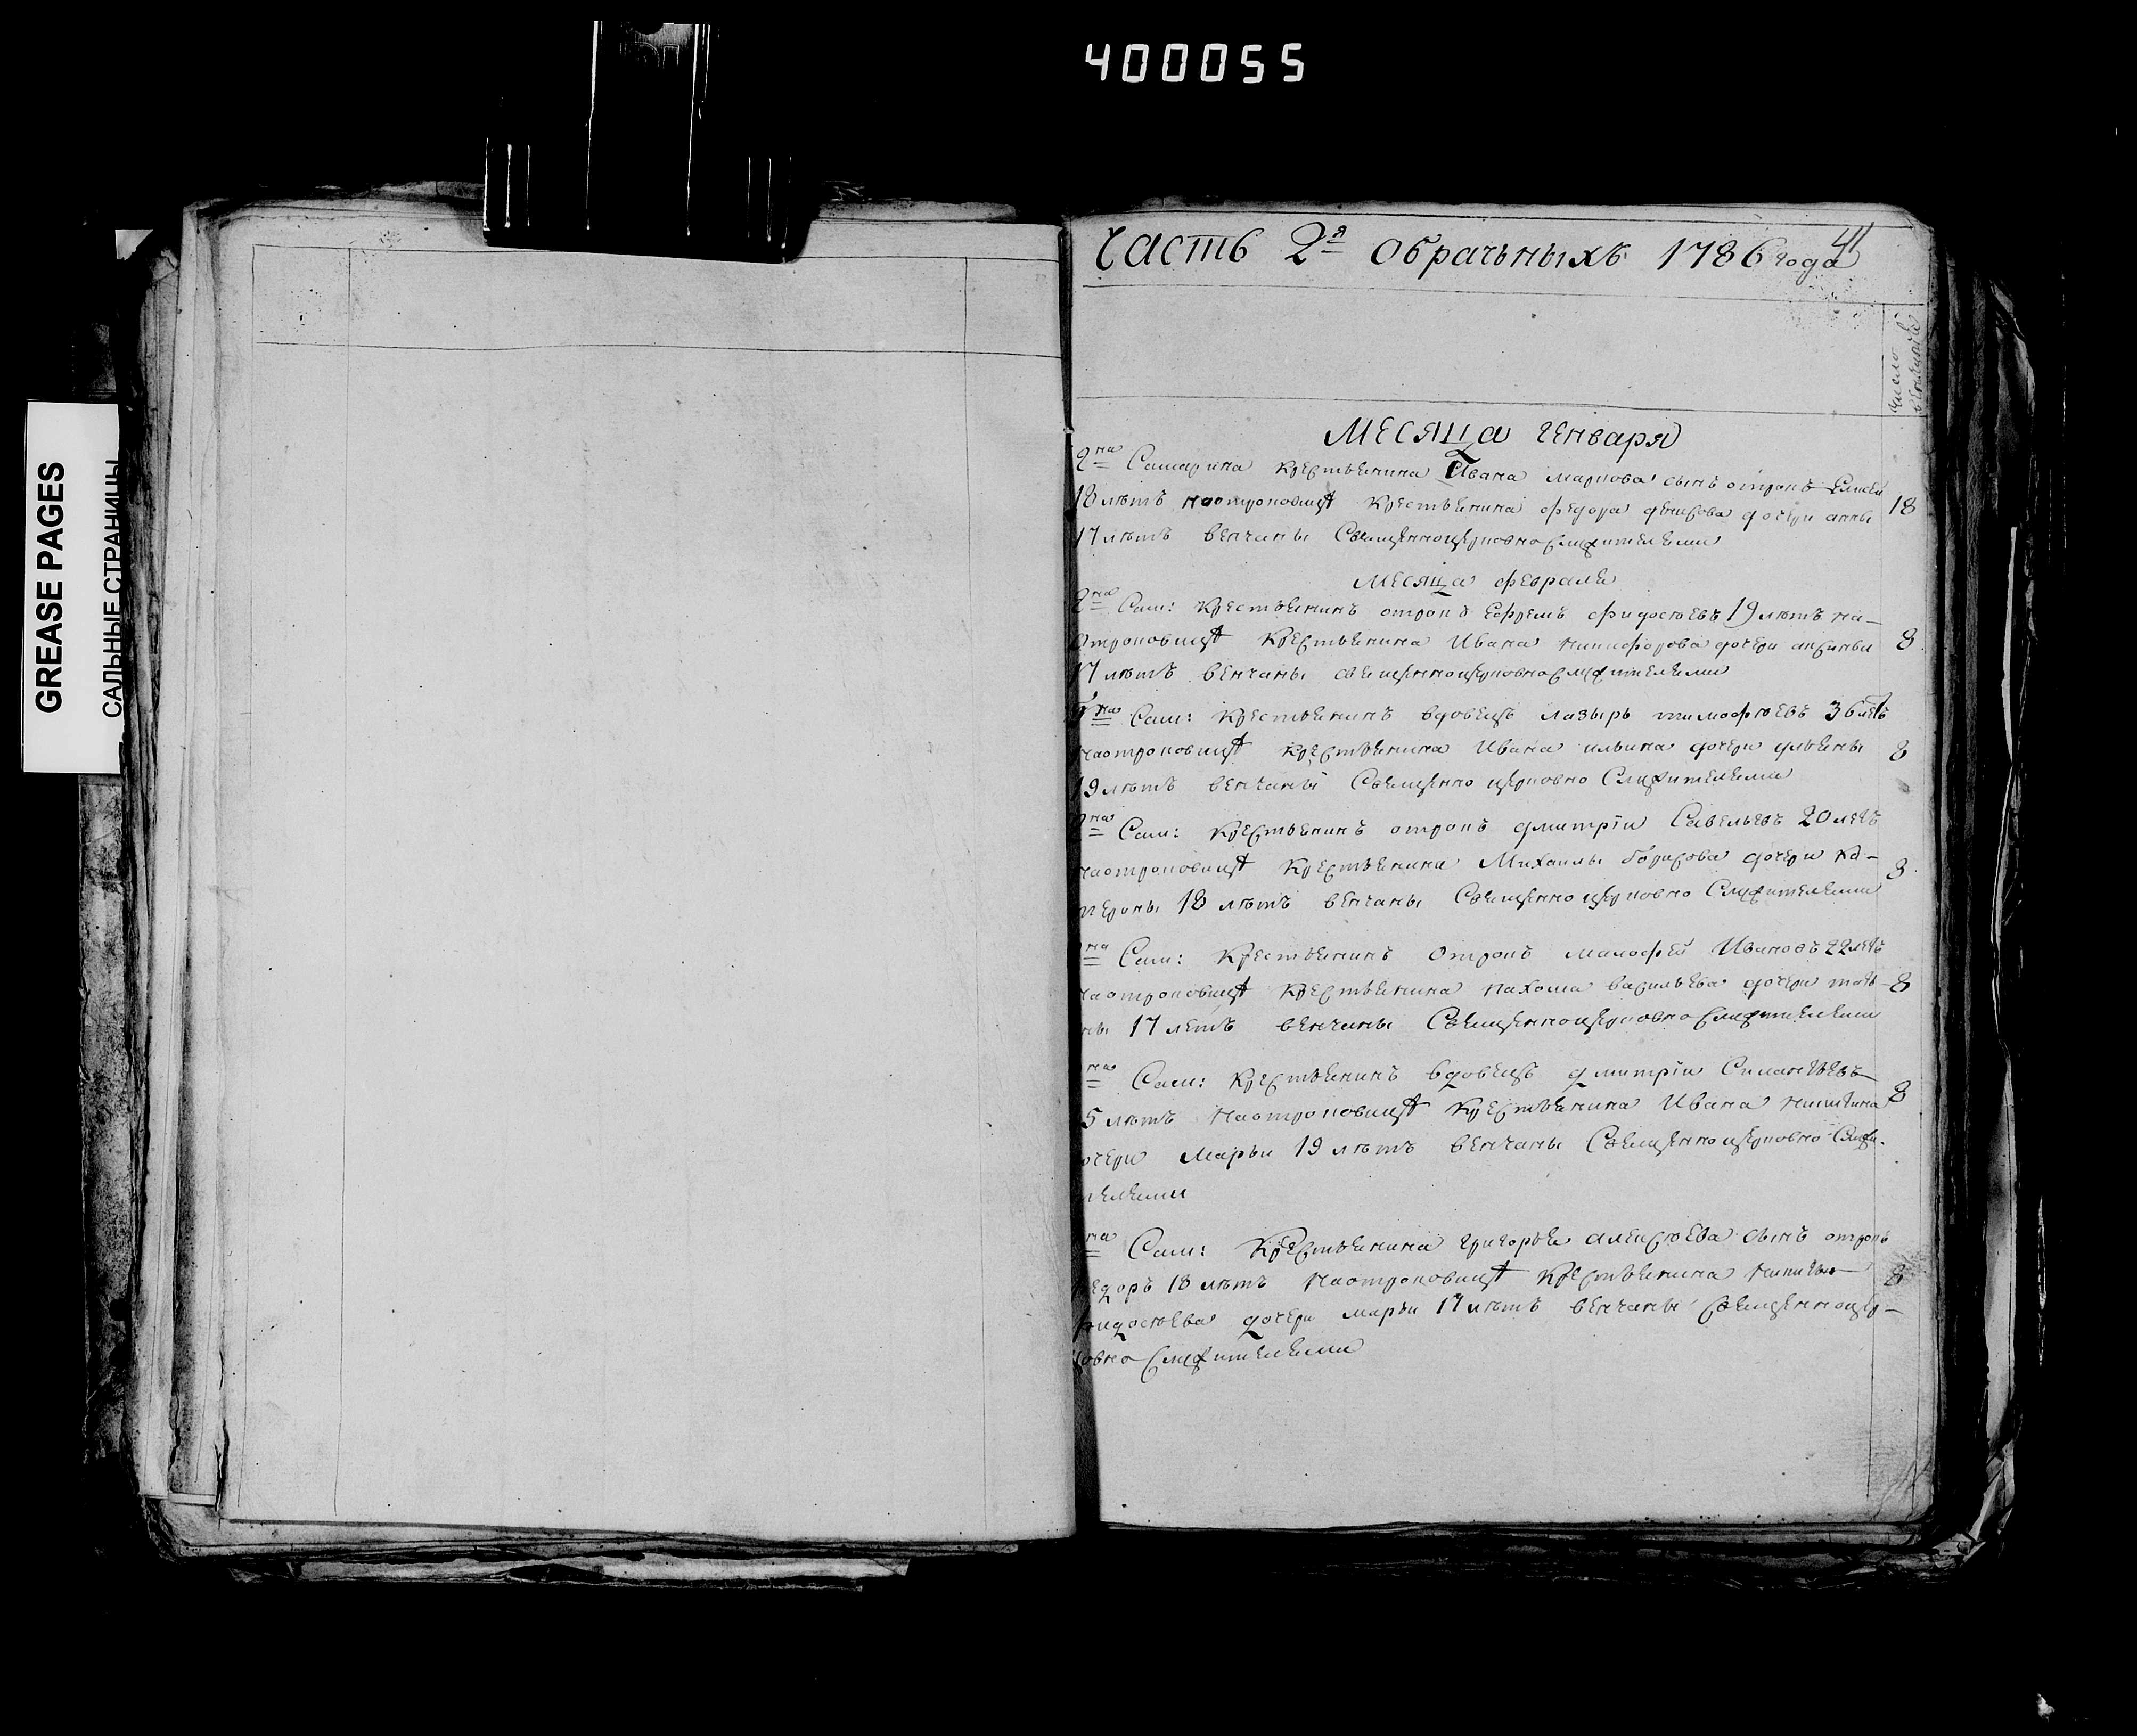 400055
GREASE PAGES
САЛЬНЫЕ СТРАНИЦЫ
41
Часть 2я обрачныхъ 1786 года
число
венчанiя
Месяца генваря
2на Самарина крестьянина Ивана маркова сынъ отрокъ Елисей
18 лѣтъ наотроковицѣ крестьянина федора денисова дочери анны 18
17 лѣтъ венчаны Священноцерковнослужителями
Месяца февраля
2на Сам: крестьянинъ отрокъ ефремъ фидосѣевъ 19 лѣтъ на-
отроковицѣ крестьянина Ивана никифорова дочери аксиньи 8
17 лѣтъ венчаны священноцерковнослужителями
на Сам: крестьянинъ вдовецъ лазырь тимофѣевъ 36 летъ
наотроковицѣ крестьянина Ивана ильина дочери ульяны 8
19 лѣтъ венчаны Священно церковно Служителями
на Сам: крестьянинъ отрокъ дмитрiи Савельевъ 20 летъ
наотроковицѣ крестьянина Михаилы борисова дочери ка- 8
терины 18 лѣтъ венчаны Священно церковно Служителями
на Сам: крестьянинъ отрокъ малофей Ивановъ 22 летъ
наотроковицѣ крестьянина пахома васильева дочери татья- 8
ны 17 летъ венчаны Священноцерковно Служителями
на Сам: крестьянинъ вдовецъ дмитрiи Силантьевъ
5 лѣтъ наотроковицѣ крестьянина Ивана никитина 8
очери Марьи 19 лѣтъ венчаны Священно церковно Служи-
телями
на Сам: крестьянина григорья алексѣева сынъ отрокъ
федоръ 18 лѣтъ наотроковицѣ крестьянина никиты 8
фидосѣева дочери марьи 17 лѣтъ венчаны священноцер-
ковно Служителями